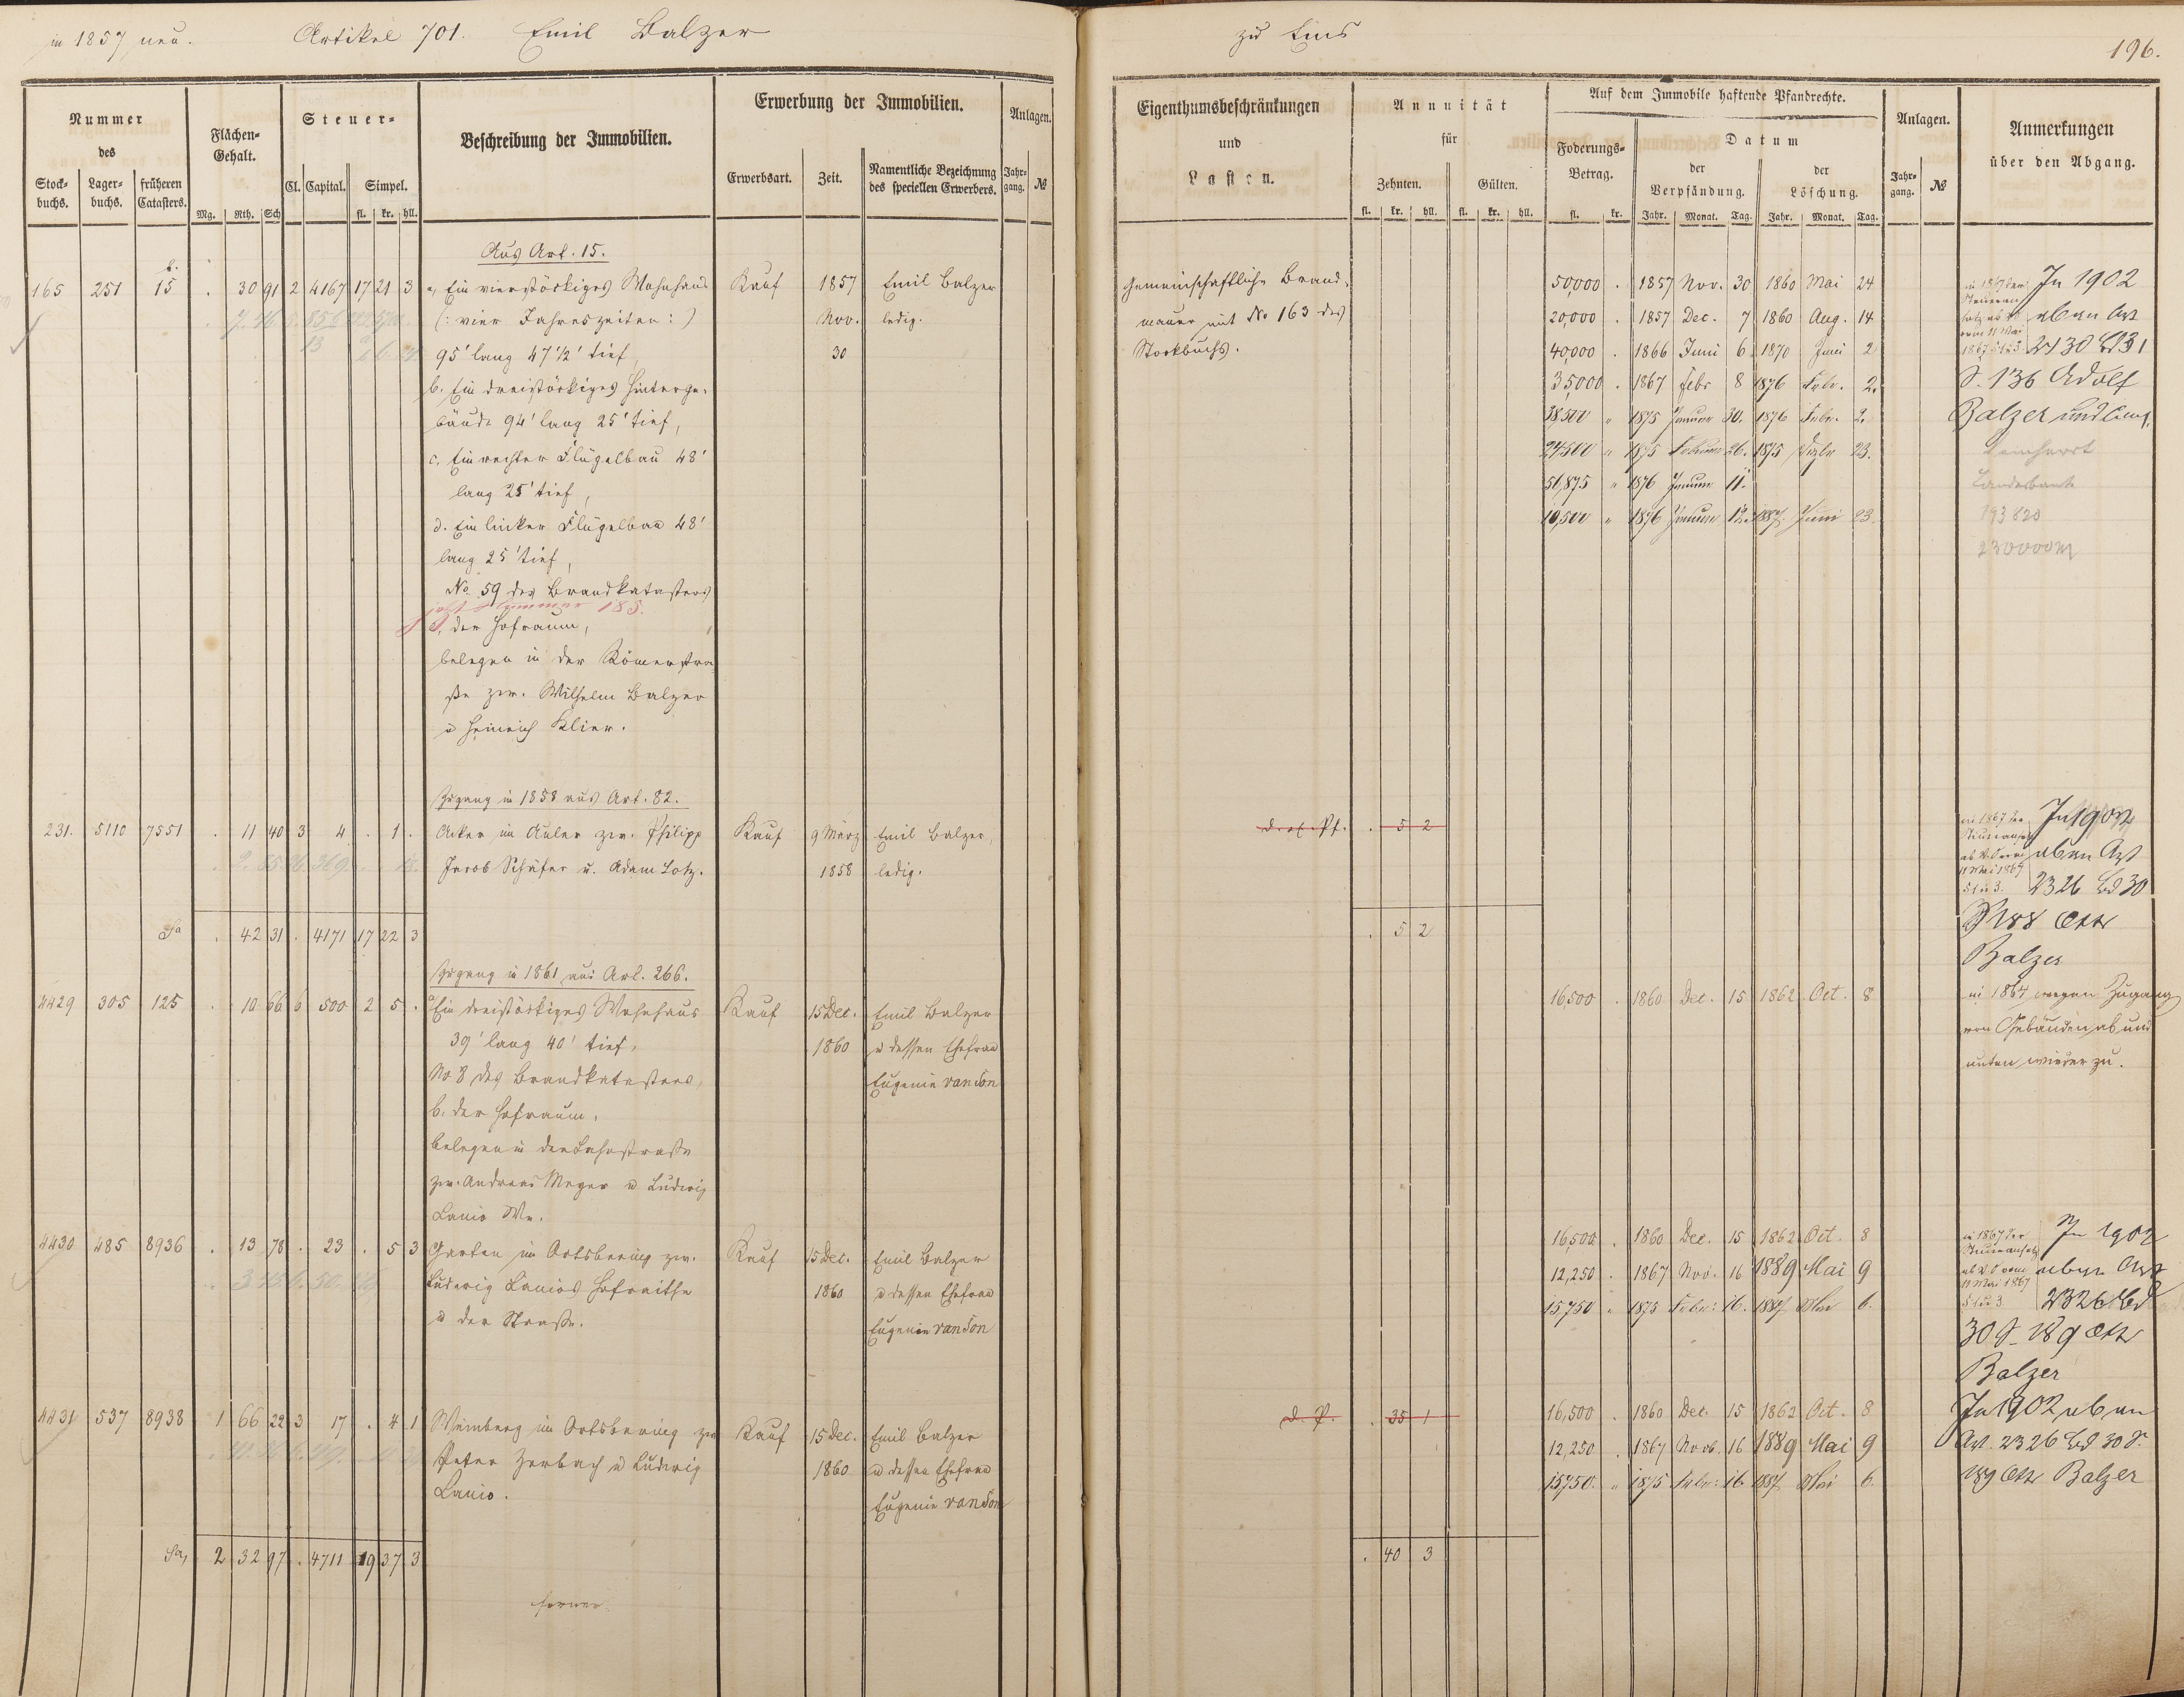 in 1857 neu. Artikel 701. Emil Balzer
Nummer des
Stock-buchs. Lager-buchs. früheren Catasters.
Flächen-Gehalt.
Mg. Rth. Sch
Steuer-
Cl. Capital. Simpel.
fl. kr. hll.
Beschreibung der Immobilien.
Erwerbung der Immobilien.
Erwerbsart. Zeit. Namentliche Bezeichnung des speciellen Erwerbers.
Anlagen.
Jahr-gang. №
Aus Art. 15.
165 251 15 . 30 91 2 4167 17 21 3 a, Ein vierstöckiges Wohnhaus Kauf 1857 Emil Balzer
(: vier Jahreszeiten :) Nov. ledig.
95' lang 47 1/2' tief, 30
b. Ein dreistöckiges Hinterge-
bäude 94' lang 25' tief,
c. Ein rechter Flügelbau 48'
lang 25' tief,
d. Ein linker Flügelbau 48'
lang 25' tief,
No. 59 des Brandkatasters
jetzt Nummer 185.
e. der Hofraum,
belegen in der Römerstra-
ße zw. Wilhelm Balzer
u Heinrich Klier.
Zugang in 1858 aus Art. 82.
231. 5110 7551 . 11 40 3 4 . 1 . Acker im Auler zw. Philipp Kauf 9 März Emil Balzer,
Jacob Schäfer u. Adam Lotz. 1858 ledig.
Sa . 42 31 . 4171 17 22 3
Zugang in 1861 aus Art. 266.
4429 305 125 . 10 66 6 500 2 5 . a Ein dreistöckiges Wohnhaus Kauf 15 Dec. Emil Balzer
39' lang 40' tief, 1860 u dessen Ehefrau
No 8 des Brandkatasters, Eugenie van Son
b. der Hofraum,
belegen in der Lahnstraße
zw. Andreas Meyer u Ludwig
Lanio We.
4430 485 8936 . 13 78 . 23 . 5 3 Garten im Ortsbering zw. Kauf 15 Dec. Emil Balzer
Ludwig Lanios Hofraithe 1860 u dessen Ehefrau
u der Straße. Eugenie van Son
4431 537 8938 1 66 22 3 17 . 4 1 Weinberg im Ortsbering zw Kauf 15 Dec. Emil Balzer
Peter Zerbach u Ludwig 1860 u dessen Ehefrau
Lanio. Eugenie van Son
Sa, 2 32 97 . 4711 19 37 3
ferner
zu Ems
196.
Eigenthumsbeschränkungen und Lasten.
Annuität für
Zehnten. Gülten.
fl. kr. hll. fl. kr. hll.
Auf dem Immobile haftende Pfandrechte.
Foderungs-Betrag.
fl. kr.
Datum
der Verpfändung. der Löschung.
Jahr. Monat. Tag. Jahr. Monat. Tag.
Anlagen.
Jahr-gang. №
Anmerkungen über den Abgang.
Gemeinschaftliche Brand-
mauer mit No 163 des
Stockbuchs.
50,000 . 1857 Nov. 30 1860 Mai 24
20,000 . 1857 Dec. 7 1860 Aug. 14
40,000 . 1866 Juni 6 1870 Juni 2
35,000 . 1867 Febr 8 1876 Febr. 2.
38,500 " 1875 Januar 30. 1876 Febr. 2.
24,500 " 1875 Februar 26. 1875 Dezbr 23.
51,875 " 1876 Januar 11.
10,500 " 1876 Januar 12. 1887 Juni 23.
In 1902
ab an Art
2130 Bd 31
S. 136 Adolf
Balzer und Cons.
Landesbank
193 820
230000 M
d. rf. Pf. . 5 2
in 1867 der
Steueransatz
ab V. O vom
11 Mai 1867
§ 1 u 3.
In 1902
ab an Art
2326 Bd 30
S 188 Otto
Balzer
. 5 2
16,500 . 1860 Dec. 15 1862 Oct. 8
in 1864 wegen Zugang
von Gebäuden ab und
unten wieder zu.
16,500 . 1860 Dec. 15 1862 Oct. 8
12,250 . 1867 Nov. 16 1889 Mai 9
15,750 " 1875 Febr: 16. 1887 Mai 6.
in 1867 der
Steueransatz
ab V. O vom
11 Mai 1867
§ 1 u 3
In 1902
ab an Art
2326 Bd
30 S. 189 Otto
Balzer
d. P. . 35 1
16,500 . 1860 Dec. 15 1862 Oct. 8
12,250 . 1867 Novb. 16 1889 Mai 9
15,750. " 1875 Febr: 16 1887 Mai 6.
In 1902 ab an
Art. 2326 Bd 30 S.
189 Otto Balzer
. 40 3